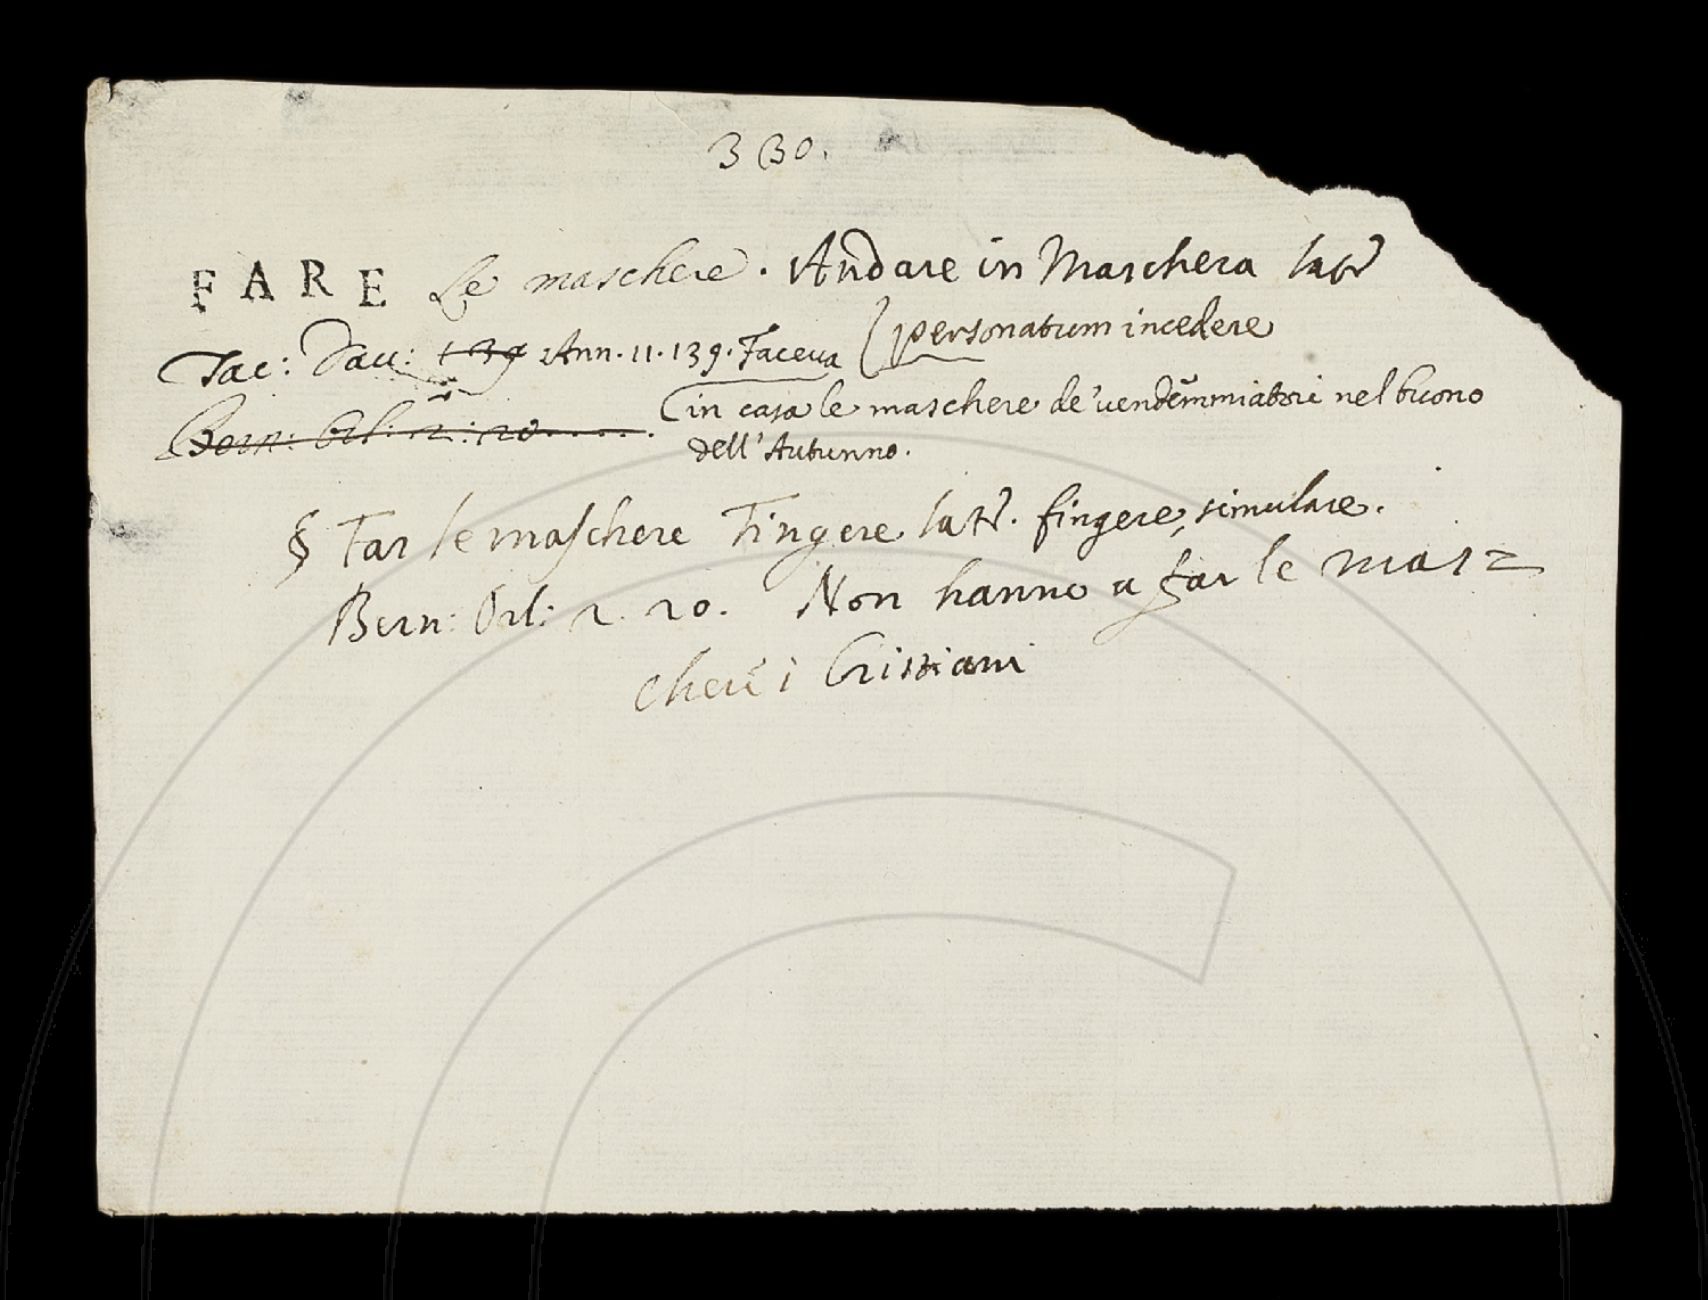 330.
FARE Le maschere. Andare in Maschera lat.
personatum incedere
Tac: Dau: 139 Ann. 11. 139. Faceua
in casa le maschere de' uendemmiatori nel buono
Bern: Orl: 2: 20......
dell'Autunno.
§ Far le maschere Fingere lat. fingere, simulare.
Bern: Orl: 2. 20. Non hanno a far le mas=
i Cristiani